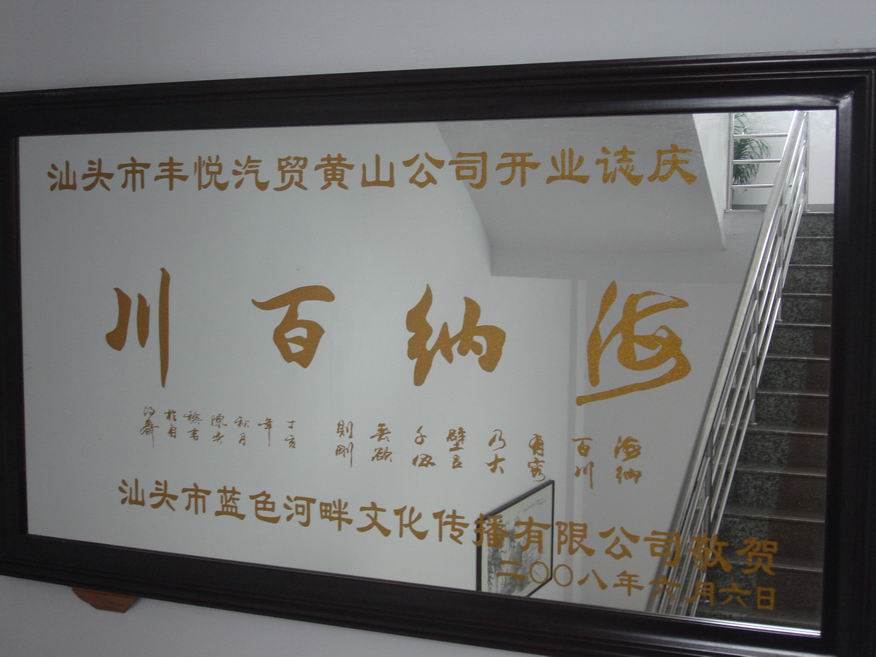 汕头市丰悦汽贸黄山公司开业誌庆
海纳百川
海纳百川有容乃大壁立千仞無欲則刚
丁亥年秋月陈
汕头市蓝色河畔文化传播有限公司敬贺
二〇〇八年六月六日